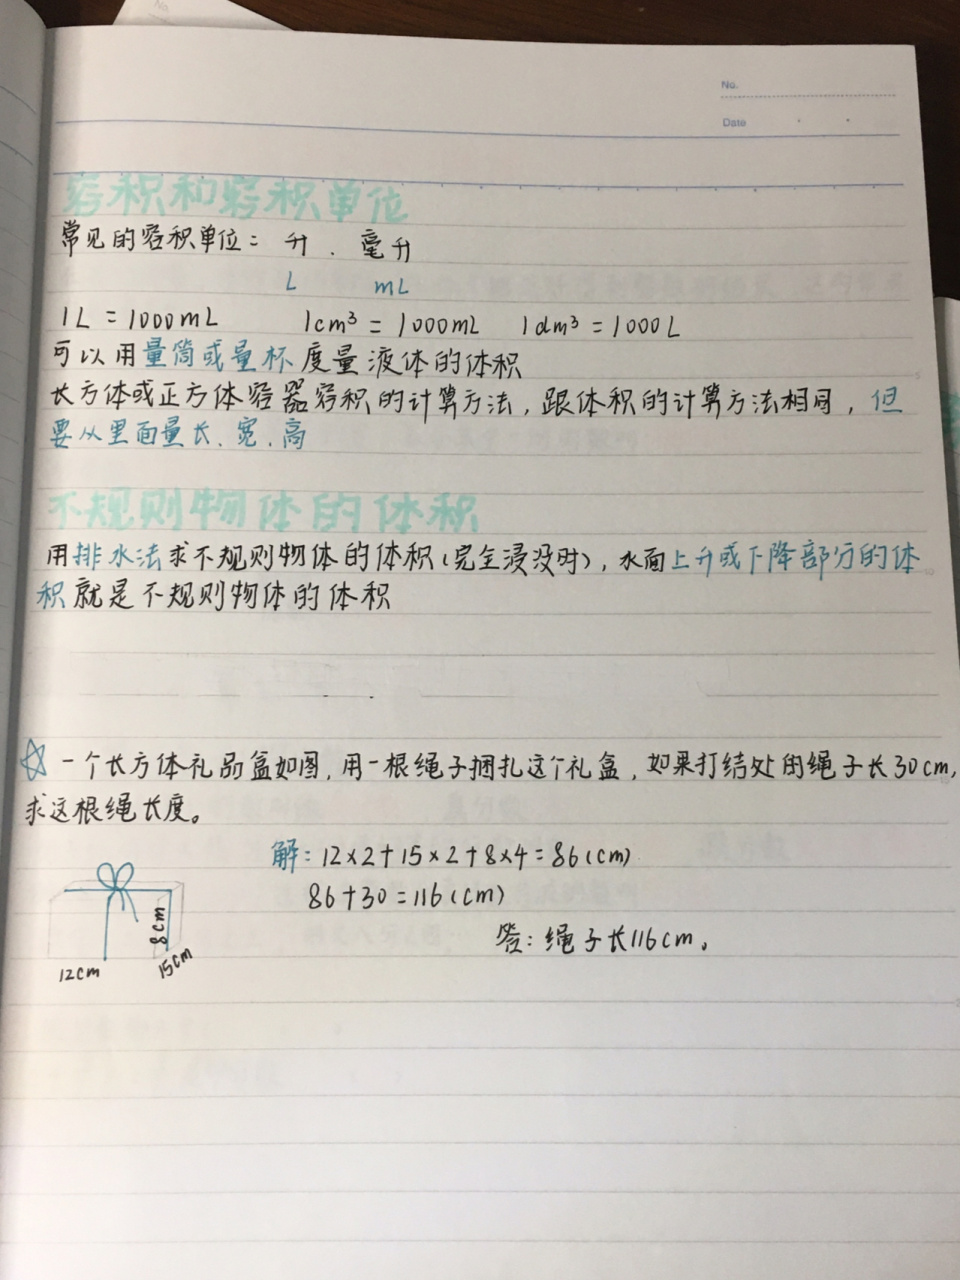 No.
Date
容积和容积单位
常见的容积单位：升、毫升
L mL
1L=1000mL 1cm³=1000mL 1dm³=1000L
可以用量筒或量杯度量液体的体积
长方体或正方体容器容积的计算方法，跟体积的计算方法相同，但
要从里面量长、宽、高
不规则物体的体积
用排水法求不规则物体的体积（完全浸没时），水面上升或下降部分的体
积就是不规则物体的体积
☆一个长方体礼品盒如图，用一根绳子捆扎这个礼盒，如果打结处的绳子长30cm，
求这根绳长度。
解：12×2+15×2+8×4=86(cm)
86+30=116(cm)
答：绳子长116cm。
8cm
12cm 15cm